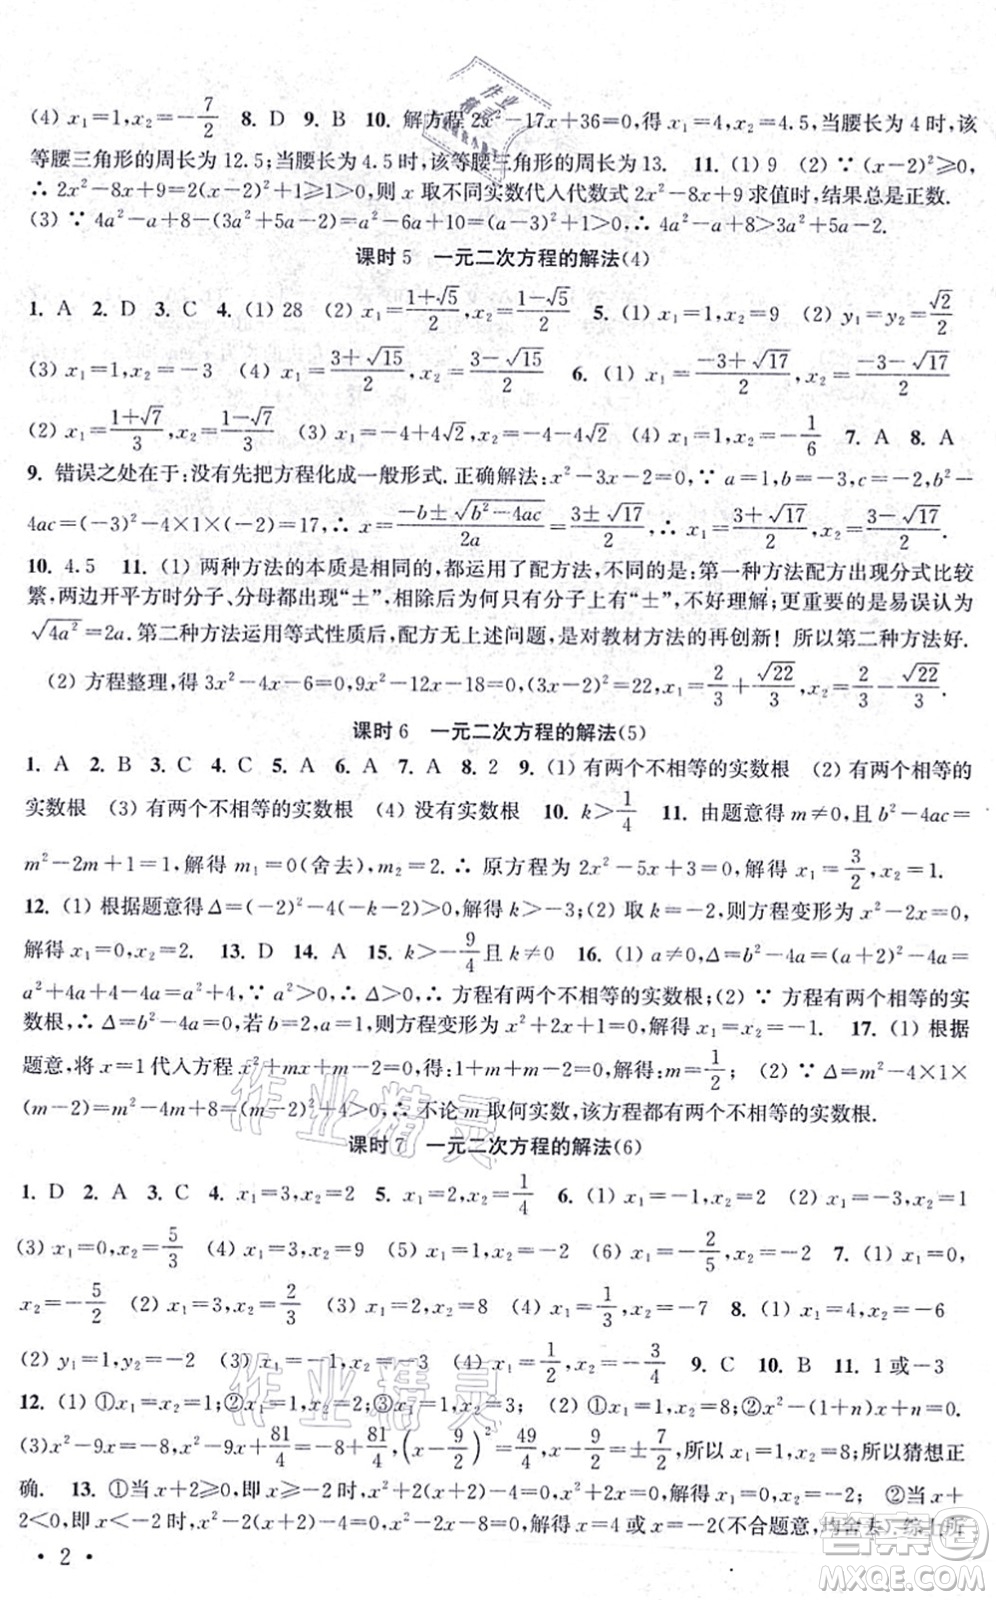 (4) x₁=1,x₂=-7/2 8. D 9. B 10. 解方程 2x²-17x+36=0,得 x₁=4,x₂=4.5,当腰长为 4 时,该
等腰三角形的周长为 12.5;当腰长为 4.5 时,该等腰三角形的周长为 13. 11. (1) 9 (2) ∵ (x-2)²≥0,
∴ 2x²-8x+9=2(x-2)²+1≥1>0,则 x 取不同实数代入代数式 2x²-8x+9 求值时,结果总是正数.
(3) ∵ 4a²-a+8-(3a²+5a-2)=a²-6a+10=(a-3)²+1>0,∴ 4a²-a+8>3a²+5a-2.
课时 5 一元二次方程的解法(4)
1. A 2. D 3. C 4. (1) 28 (2) x₁=(1+√5)/2,x₂=(1-√5)/2 5. (1) x₁=1,x₂=9 (2) y₁=y₂=√2/2
(3) x₁=1,x₂=-3 (4) x₁=(3+√15)/2,x₂=(3-√15)/2 6. (1) x₁=(-3+√17)/2,x₂=(-3-√17)/2
(2) x₁=(1+√7)/3,x₂=(1-√7)/3 (3) x₁=-4+4√2,x₂=-4-4√2 (4) x₁=1,x₂=-1/6 7. A 8. A
9. 错误之处在于:没有先把方程化成一般形式.正确解法:x²-3x-2=0,∵ a=1,b=-3,c=-2,b²-
4ac=(-3)²-4×1×(-2)=17,∴ x=(-b±√(b²-4ac))/2a=(3±√17)/2,∴ x₁=(3+√17)/2,x₂=(3-√17)/2.
10. 4.5 11. (1) 两种方法的本质是相同的,都运用了配方法,不同的是:第一种方法配方出现分式比较
繁,两边开平方时分子、分母都出现“±”,相除后为何只有分子有“±”,不好理解;更重要的是易误认为
√(4a²)=2a.第二种方法运用等式性质后,配方无上述问题,是对教材方法的再创新！所以第二种方法好.
(2) 方程整理,得 3x²-4x-6=0,9x²-12x-18=0,(3x-2)²=22,x₁=2/3+√22/3,x₂=2/3-√22/3.
课时 6 一元二次方程的解法(5)
1. A 2. B 3. C 4. B 5. A 6. A 7. A 8. 2 9. (1) 有两个不相等的实数根 (2) 有两个不相等的
实数根 (3) 有两个不相等的实数根 (4) 没有实数根 10. k>1/4 11. 由题意得 m≠0,且 b²-4ac=
m²-2m+1=1,解得 m₁=0(舍去),m₂=2.∴ 原方程为 2x²-5x+3=0,解得 x₁=3/2,x₂=1.
12. (1) 根据题意得 Δ=(-2)²-4(-k-2)>0,解得 k>-3;(2) 取 k=-2,则方程变形为 x²-2x=0,
解得 x₁=0,x₂=2. 13. D 14. A 15. k>-9/4且 k≠0 16. (1) a≠0,Δ=b²-4a=(a+2)²-4a=
a²+4a+4-4a=a²+4,∵ a²>0,∴ Δ>0,∴ 方程有两个不相等的实数根;(2) ∵ 方程有两个相等的实
数根,∴ Δ=b²-4a=0,若 b=2,a=1,则方程变形为 x²+2x+1=0,解得 x₁=x₂=-1. 17. (1) 根据
题意,将 x=1 代入方程 x²+mx+m-2=0,得:1+m+m-2=0,解得:m=1/2; (2) ∵ Δ=m²-4×1×
(m-2)=m²-4m+8=(m-2)²+4>0,∴ 不论 m 取何实数,该方程都有两个不相等的实数根.
课时 7 一元二次方程的解法(6)
1. D 2. A 3. C 4. x₁=3,x₂=2 5. x₁=2,x₂=1/4 6. (1) x₁=-1,x₂=2 (2) x₁=-3,x₂=1
(3) x₁=0,x₂=5/3 (4) x₁=3,x₂=9 (5) x₁=1,x₂=-2 (6) x₁=-2/5,x₂=-2 7. (1) x₁=0,
x₂=-5/2 (2) x₁=3,x₂=2/3 (3) x₁=2,x₂=8 (4) x₁=1/3,x₂=-3 8. (1) x₁=4,x₂=-6
(2) y₁=1,y₂=-2 (3) x₁=-1,x₂=-3 (4) x₁=1/2,x₂=3/2 9. C 10. B 11. 1 或-3
12. (1) ①x₁=1,x₂=1;②x₁=1,x₂=2;③x₁=1,x₂=3 (2) ①x₁=1,x₂=8 ②x²-(1+n)x+n=0.
(3)x²-9x=-8,x²-9x+81/4=-8+81/4,(x-9/2)²=49/4,x-9/2=±7/2,所以 x₁=1,x₂=8;所以猜想正
确. 13. ①当 x+2≥0,即 x≥-2 时,x²+2(x+2)-4=0,解得 x₁=0,x₂=-2; ②当 x+
2<0,即 x<-2 时,x²-2(x+2)-4=0,解得 x=4 或 x=-2(不合题意,均舍去).综上所
• 2 •
作业精灵
作业精灵
答案圈
MXQE.COM